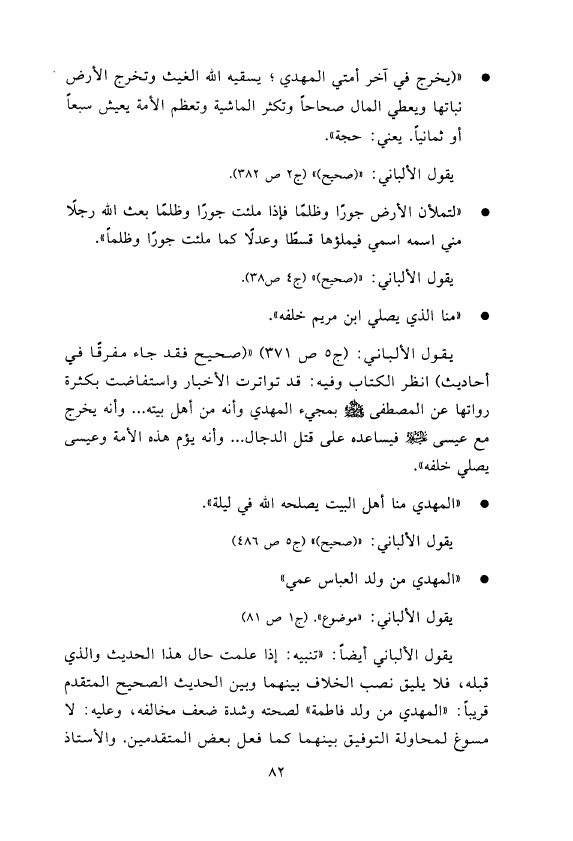 • «(يخرج في آخر أمتي المهدي ؛ يسقيه الله الغيث وتخرج الأرض
نباتها ويعطي المال صحاحاً وتكثر الماشية وتعظم الأمة يعيش سبعاً
أو ثمانياً. يعني: حجة)».
يقول الألباني: «(صحيح)» (ج٢ ص ٣٨٢).
• «لتملأن الأرض جورًا وظلمًا فإذا ملئت جورًا وظلمًا بعث الله رجلًا
مني اسمه اسمي فيملؤها قسطًا وعدلًا كما ملئت جورًا وظلماً».
يقول الألباني: «(صحيح)» (ج٤ ص٣٨).
• «منا الذي يصلي ابن مريم خلفه».
يقول الألباني: (ج٥ ص ٣٧١) «(صحيح فقد جاء مفرقًا في
أحاديث) انظر الكتاب وفيه: قد تواترت الأخبار واستفاضت بكثرة
رواتها عن المصطفى ﷺ بمجيء المهدي وأنه من أهل بيته... وأنه يخرج
مع عيسى ﷺ فيساعده على قتل الدجال... وأنه يؤم هذه الأمة وعيسى
يصلي خلفه».
• «المهدي منا أهل البيت يصلحه الله في ليلة».
يقول الألباني: «(صحيح)» (ج٥ ص ٤٨٦)
• «المهدي من ولد العباس عمي»
يقول الألباني: «موضوع». (ج١ ص ٨١)
يقول الألباني أيضاً: «تنبيه: إذا علمت حال هذا الحديث والذي
قبله، فلا يليق نصب الخلاف بينهما وبين الحديث الصحيح المتقدم
قريباً: «المهدي من ولد فاطمة» لصحته وشدة ضعف مخالفه، وعليه: لا
مسوغ لمحاولة التوفيق بينهما كما فعل بعض المتقدمين. والأستاذ
٨٢